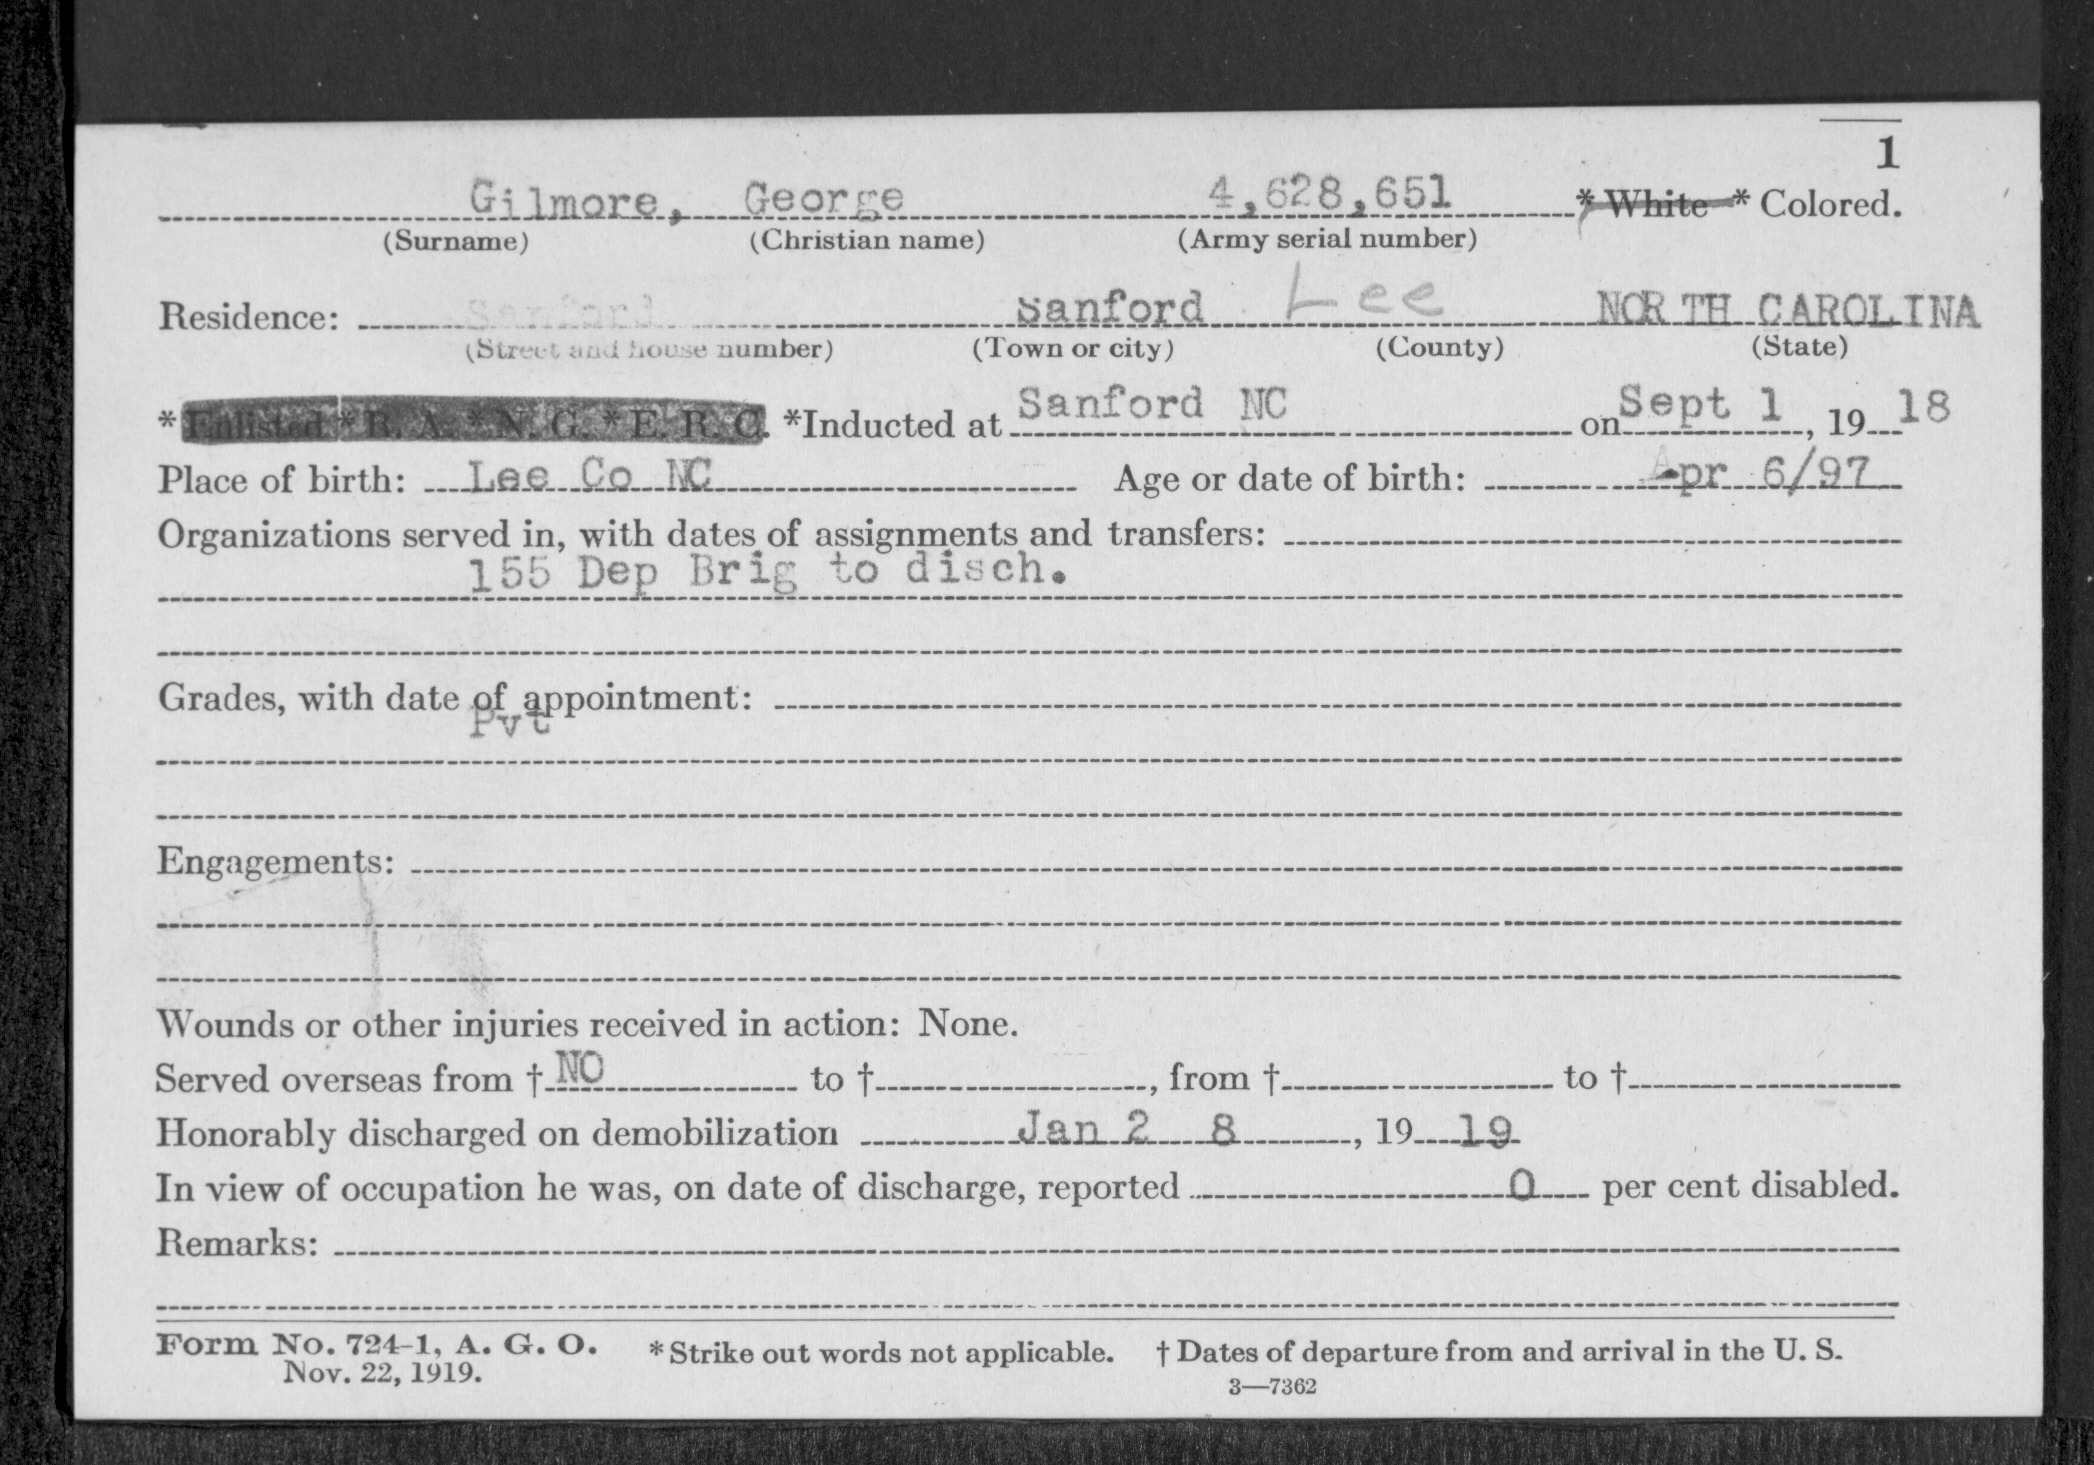 1
Gilmore, George 4,628,651 * White * Colored.
(Surname) (Christian name) (Army serial number)
Residence: Sanford Sanford Lee NORTH CAROLINA
(Street and house number) (Town or city) (County) (State)
* Enlisted * R. A. * N. G. * E. R. C. *Inducted at Sanford NC on Sept 1, 19 18
Place of birth: Lee Co NC Age or date of birth: Apr 6/97
Organizations served in, with dates of assignments and transfers:
155 Dep Brig to disch.
Grades, with date of appointment:
Pvt
Engagements:
Wounds or other injuries received in action: None.
Served overseas from † NO to †, from † to †
Honorably discharged on demobilization Jan 2 8, 19 19
In view of occupation he was, on date of discharge, reported 0 per cent disabled.
Remarks:
Form No. 724-1, A. G. O. * Strike out words not applicable. † Dates of departure from and arrival in the U. S.
Nov. 22, 1919.
3—7362